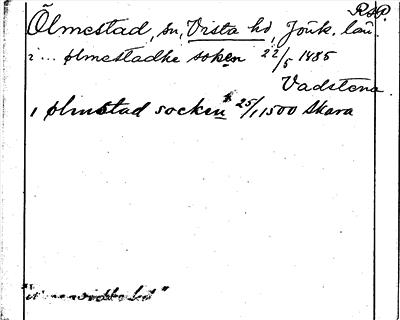 RAP.
Ölmestad, sn, Vista hd, Jönk. län.
i... ølmestadhe soken 22/5 1485
Vadstena
i ølmstad socken 25/1 1500 Skara